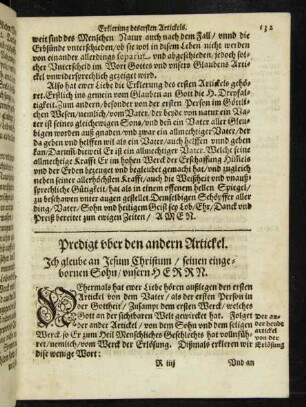 Erklerung des ersten Artickels. 132
weit sind des Menschen Natur auch nach dem Fall / vnnd die
Erbsünde vnterschieden / ob sie wol in disem Leben nicht werden
von einander allerdings separirt vnd abgeschieden / jedoch sol-
cher Vnterscheid im Wort Gottes vnd vnsers Glaubens Artic-
kel vnwidersprechlich gezeiget wird.
Also hat ewer Liebe die Erklerung des ersten Artickels gehö-
ret. Erstlich ins gemein vom Glauben an Gott die H. Dreyfal-
tigkeit. Zum andern / besonder von der ersten Person im Göttli-
chen Wesen / nemlich / vom Vater / der beyde von natur ein Va-
ter ist seines gleichewigen Sons / vnd deß ein Vater aller Gleu-
bigen worden auß gnaden / vnd zwar ein allmechtiger Vater / der
da geben vnd helffen wil als ein Vater / auch helffen vnnd geben
kan / darumb dieweil Er ist ein allmechtiger Vater. Welche seine
allmechtige Krafft Er im hohen Werck der Erschaffung Himels
vnd der Erden bezeuget vnd beglaubet gemacht hat / vnd zugleich
neben seiner allerhöchsten Krafft / auch die Weißheit vnd vnauß-
sprechliche Gütigkeit / hat als in einem offenem hellen Spiegel /
zu beschawen vnter augen gestellet. Demselbigen Schöpffer aller
ding / Vater / Sohn vnd heiligem Geist sey Lob / Ehr / Danck vnd
Preiß bereitet zum ewigen Zeiten / AMEN.
Predigt vber den andern Artickel.
Ich gleube an Jesum Christum / seinen einge-
bornen Sohn / vnsern HERRN.
Ehermals hat ewer Liebe hören außlegen den ersten
Artickel von dem Vater / als der ersten Person in
der Gottheit / Zusampt dem ersten Werck / welches
Gott an der sichtbaren Welt gewircket hat. Folget
der ander Artickel / von dem Sohn vnd dem seligen
Werck / so Er zum Heil Menschliches Geschlechts hat vollnfüh-
ret / nemlich / vom Werck der Erlösung. Dißmals erkleren wir
dise wenige Wort:
Der an-
der
artickel
von der
Erlösung
R iiij
Vnd an